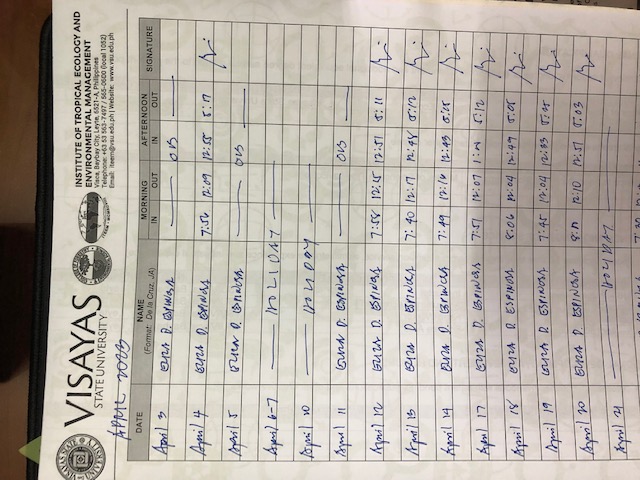 VISAYAS
STATE UNIVERSITY
INSTITUTE OF TROPICAL ECOLOGY AND
ENVIRONMENTAL MANAGEMENT
Visca, Baybay City, Leyte, 6521-A, Philippines
Telephone: +63 53 563-7497 / 565-0600 (local 1052)
Email: iteem@vsu.edu.ph | Website: www.vsu.edu.ph
APRIL 2023
DATE NAME MORNING AFTERNOON SIGNATURE
(Format: De la Cruz, JA) IN OUT IN OUT
April 3 ELIZA D. ESPINOSA OB
April 4 ELIZA D. ESPINOSA 7:56 12:09 12:55 5:17
April 5 ELIZA D. ESPINOSA OB
April 6-7 HOLIDAY
April 10 HOLIDAY
April 11 ELIZA D. ESPINOSA OB
April 12 ELIZA D. ESPINOSA 7:58 12:15 12:51 5:11
April 13 ELIZA D. ESPINOSA 7:40 12:17 12:48 5:12
April 14 ELIZA D. ESPINOSA 7:49 12:16 12:43
April 17 ELIZA D. ESPINOSA 7:51 12:07 5:12
April 18 ELIZA D. ESPINOSA 8:06 12:04 12:49
April 19 ELIZA D. ESPINOSA 7:45 12:04 12:33
April 20 ELIZA D. ESPINOSA 12:10 12:51 5:03
April 21 HOLIDAY